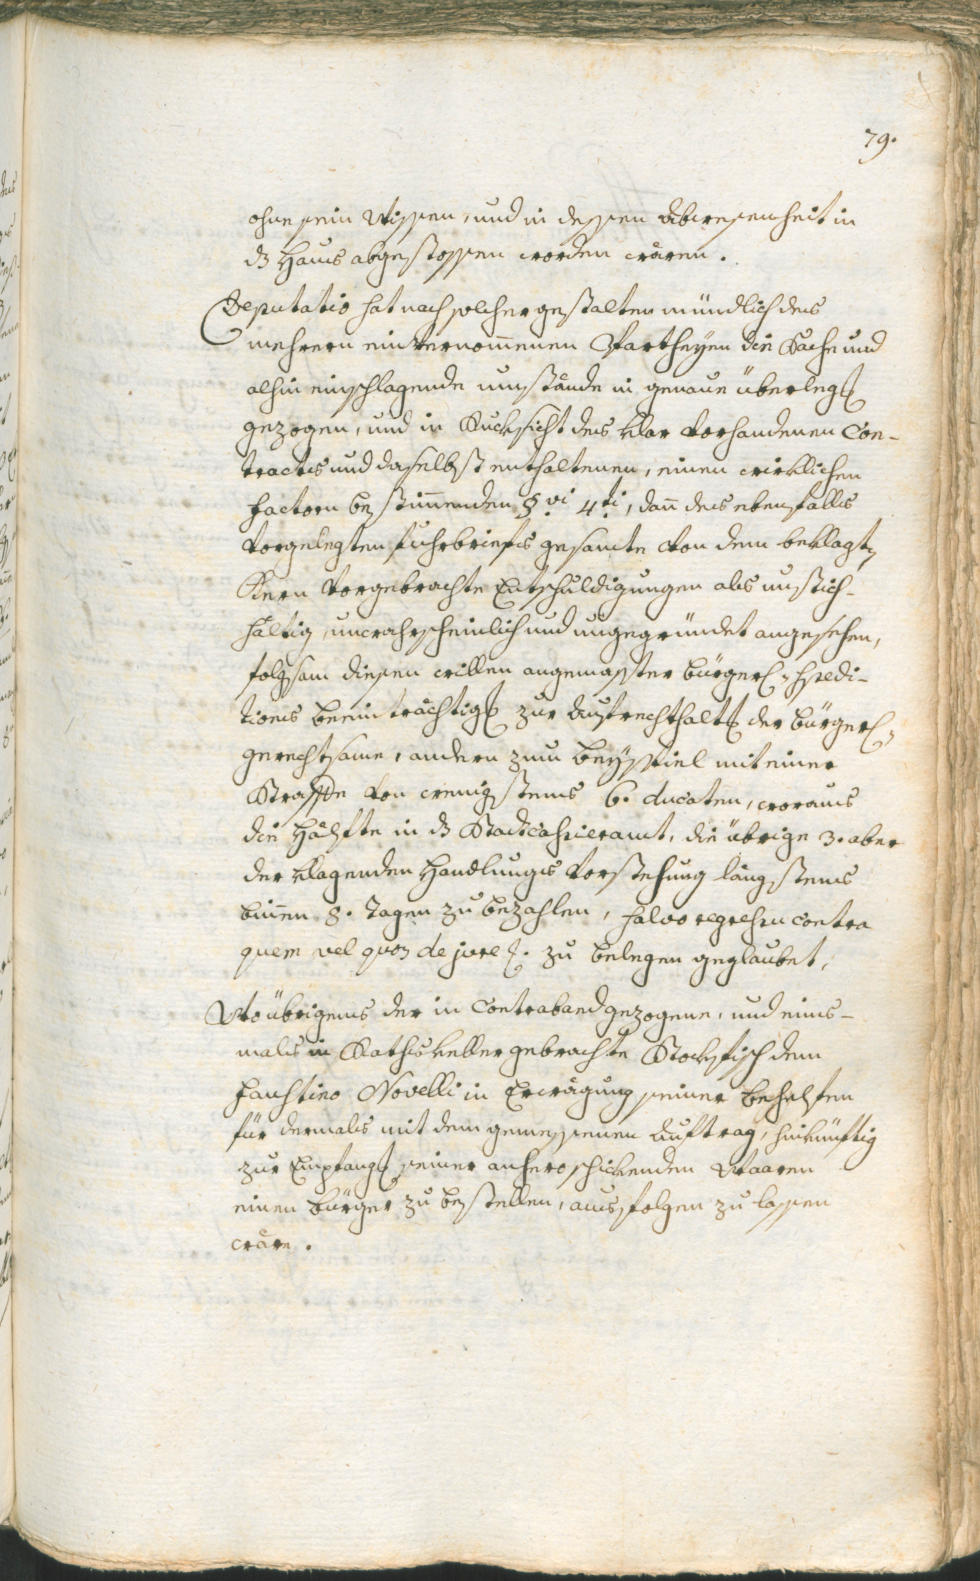 79.
ohne sein Wissen, und in dessen Abwesenheit in
dz Haus abgestossen worden wären.
Deputatio hat nach solchergestalten mündlich des
mehrern einvernommenen Partheÿen die Sache und
alhin einschlagende umstände in genaue überleg̃
gezogen, und in Rucksicht des klar vorhandenen Con-
tracts und daselbst enthaltenen, einen wirklichen
Factorn bestimmenden §.vi 4.ti, dañ des ebenfalls
vorgelegten fuhrbriefs gesamte von dem beklagtẽ
Kern vorgebrachte Entschuldigungen als unstich-
hältig, unwahrscheinlich und ungegründet angesehen,
folgsam diesen willen angemasster bürgerl: Spedi-
tions beeinträchtig̃ zur Aufrechthalt̃g der bürgerl:
gerechtsame, andern zum beÿspiel mit einer
Straffe von wenigstens 6. ducaten, woraus
die Hälfte in dz Stadtcassieramt, die übrige 3. aber
der klagenden Handlungs Vorstehung längstens
biñen 8. Tagen zu bezahlen, salvo regressu contra
quem vel quos de jure &. zu belegen geglaubet,
Wo übrigens der in Contraband gezogene, und eins-
mals in Rathskeller gebrachte Stockfisch dem
Faustino Novelli in Erwägung seiner behelfen
für dermals mit dem gemessenen Auftrag, hinkünftig
zur Empfang̃ seiner anhero schickenden Waaren
einen bürger zu bestellen, ausfolgen zu lassen
wäre.